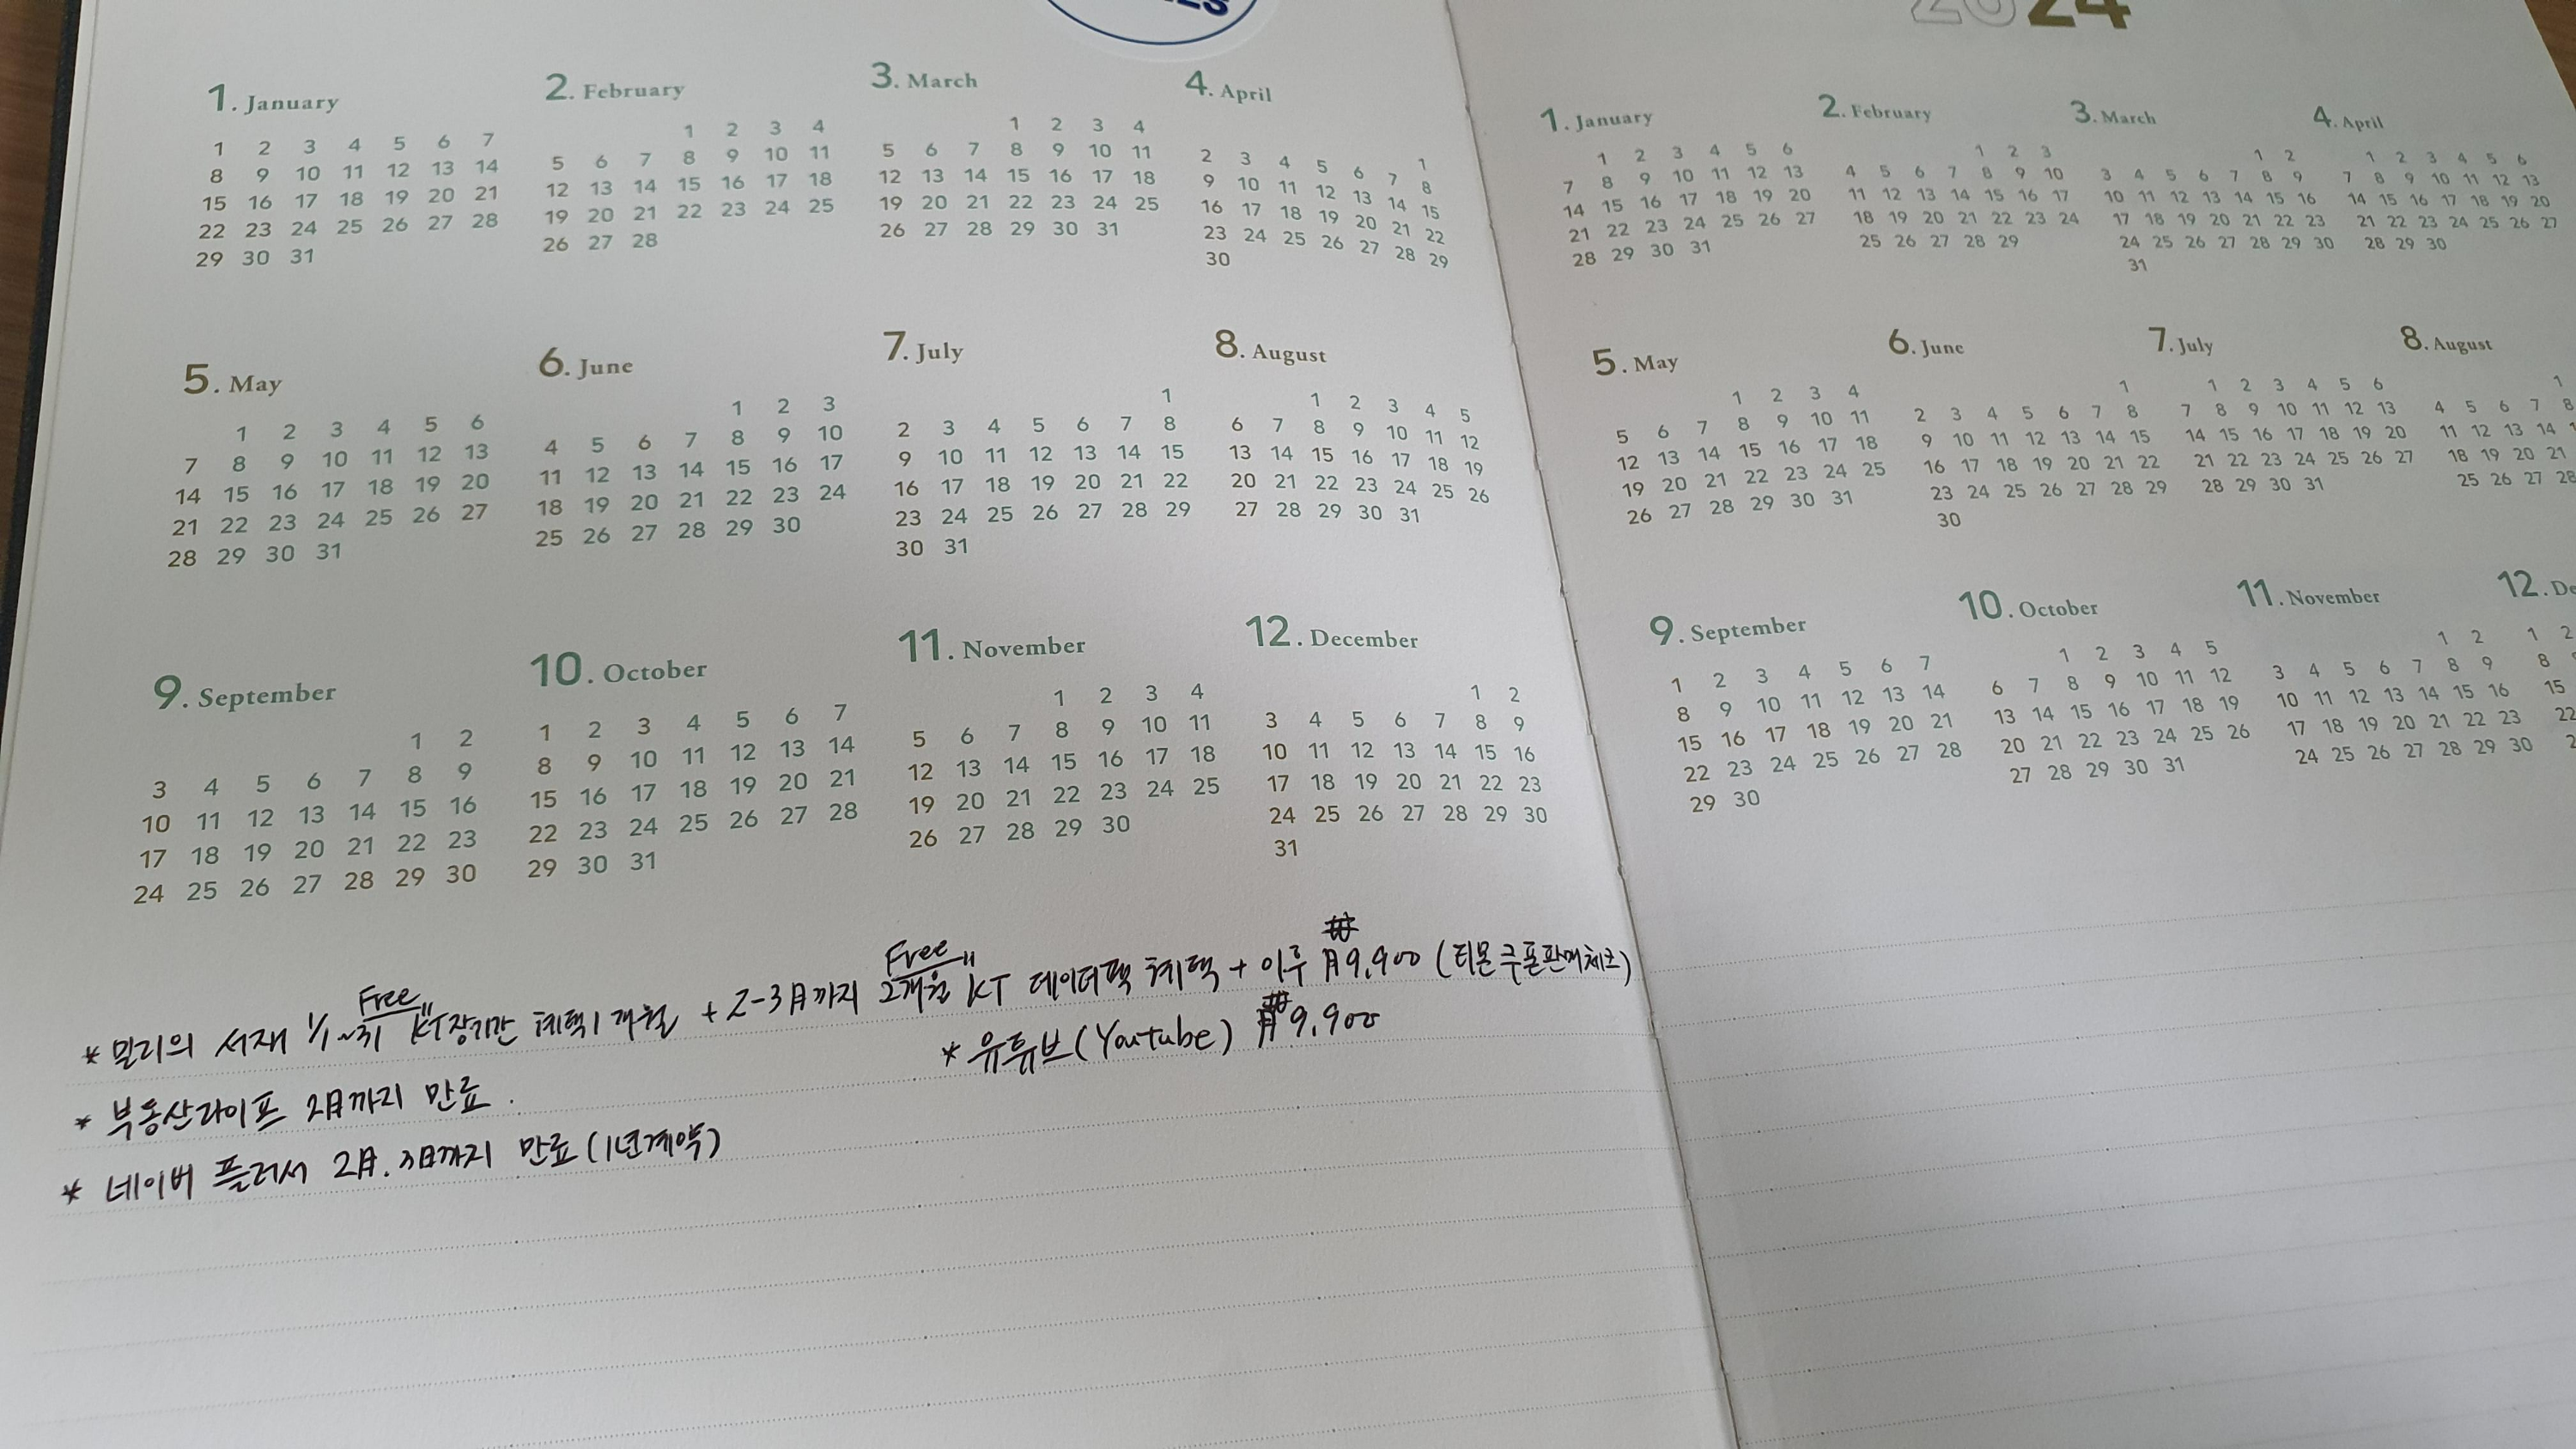 2024
1. January
1 2 3 4 5 6 7
8 9 10 11 12 13 14
15 16 17 18 19 20 21
22 23 24 25 26 27 28
29 30 31
2. February
1 2 3 4
5 6 7 8 9 10 11
12 13 14 15 16 17 18
19 20 21 22 23 24 25
26 27 28
3. March
1 2 3 4
5 6 7 8 9 10 11
12 13 14 15 16 17 18
19 20 21 22 23 24 25
26 27 28 29 30 31
4. April
1
2 3 4 5 6 7 8
9 10 11 12 13 14 15
16 17 18 19 20 21 22
23 24 25 26 27 28 29
30
5. May
1 2 3 4 5 6
7 8 9 10 11 12 13
14 15 16 17 18 19 20
21 22 23 24 25 26 27
28 29 30 31
6. June
1 2 3
4 5 6 7 8 9 10
11 12 13 14 15 16 17
18 19 20 21 22 23 24
25 26 27 28 29 30
7. July
1
2 3 4 5 6 7 8
9 10 11 12 13 14 15
16 17 18 19 20 21 22
23 24 25 26 27 28 29
30 31
8. August
1 2 3 4 5
6 7 8 9 10 11 12
13 14 15 16 17 18 19
20 21 22 23 24 25 26
27 28 29 30 31
9. September
1 2
3 4 5 6 7 8 9
10 11 12 13 14 15 16
17 18 19 20 21 22 23
24 25 26 27 28 29 30
10. October
1 2 3 4 5 6 7
8 9 10 11 12 13 14
15 16 17 18 19 20 21
22 23 24 25 26 27 28
29 30 31
11. November
1 2 3 4
5 6 7 8 9 10 11
12 13 14 15 16 17 18
19 20 21 22 23 24 25
26 27 28 29 30
12. December
1 2
3 4 5 6 7 8 9
10 11 12 13 14 15 16
17 18 19 20 21 22 23
24 25 26 27 28 29 30
31
Free Free
* 밀리의 서재 1/1~31 KT장기간 혜택1개월 + 2-3月까지 2개월 KT 데이터팩 혜택 + 이후 月9,900 (티몬쿠폰판매체크)
* 유튜브(Youtube) 月9,900
* 부동산라이프 2月까지 만료.
* 네이버 플러서 2月.3日까지 만료(1년계약)
1. January
1 2 3 4 5 6
7 8 9 10 11 12 13
14 15 16 17 18 19 20
21 22 23 24 25 26 27
28 29 30 31
2. February
1 2 3
4 5 6 7 8 9 10
11 12 13 14 15 16 17
18 19 20 21 22 23 24
25 26 27 28 29
3. March
1 2
3 4 5 6 7 8 9
10 11 12 13 14 15 16
17 18 19 20 21 22 23
24 25 26 27 28 29 30
31
4. April
1 2 3 4 5 6
7 8 9 10 11 12 13
14 15 16 17 18 19 20
21 22 23 24 25 26 27
28 29 30
5. May
1 2 3 4
5 6 7 8 9 10 11
12 13 14 15 16 17 18
19 20 21 22 23 24 25
26 27 28 29 30 31
6. June
1
2 3 4 5 6 7 8
9 10 11 12 13 14 15
16 17 18 19 20 21 22
23 24 25 26 27 28 29
30
7. July
1 2 3 4 5 6
7 8 9 10 11 12 13
14 15 16 17 18 19 20
21 22 23 24 25 26 27
28 29 30 31
8. August
1
4 5 6 7 8
11 12 13 14
18 19 20 21
25 26 27 28
9. September
1 2 3 4 5 6 7
8 9 10 11 12 13 14
15 16 17 18 19 20 21
22 23 24 25 26 27 28
29 30
10. October
1 2 3 4 5
6 7 8 9 10 11 12
13 14 15 16 17 18 19
20 21 22 23 24 25 26
27 28 29 30 31
11. November
1 2
3 4 5 6 7 8 9
10 11 12 13 14 15 16
17 18 19 20 21 22 23
24 25 26 27 28 29 30
12. De
1 2
8
15
22